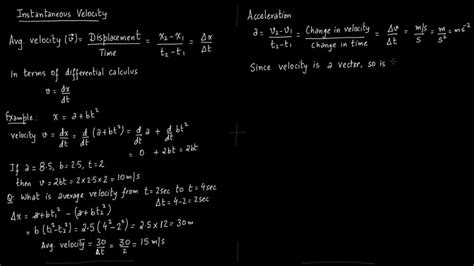 Instantaneous Velocity
Avg. velocity (v⃗) = Displacement / Time = (x₂-x₁) / (t₂-t₁) = Δx / Δt
In terms of differential calculus
v = dx/dt
Example: x = a + bt²
velocity v = dx/dt = d/dt (a+bt²) = d/dt a + d/dt bt²
= 0 + 2bt = 2bt
If a = 8.5, b = 2.5, t = 2
then v = 2bt = 2×2.5×2 = 10 m/s
Q: What is average velocity from t=2sec to t=4sec
Δt = 4-2 = 2sec
Δx = a+bt₁² - (a+bt₂²)
= b(t₁²-t₂²) = 2.5(4²-2²) = 2.5×12 = 30m
Avg. velocity = 30/Δt = 30/2 = 15 m/s
Acceleration
a = (v₂-v₁) / (t₂-t₁) = Change in velocity / change in time = Δv/Δt = (m/s)/s = m/s² = ms⁻²
Since velocity is a vector, so is